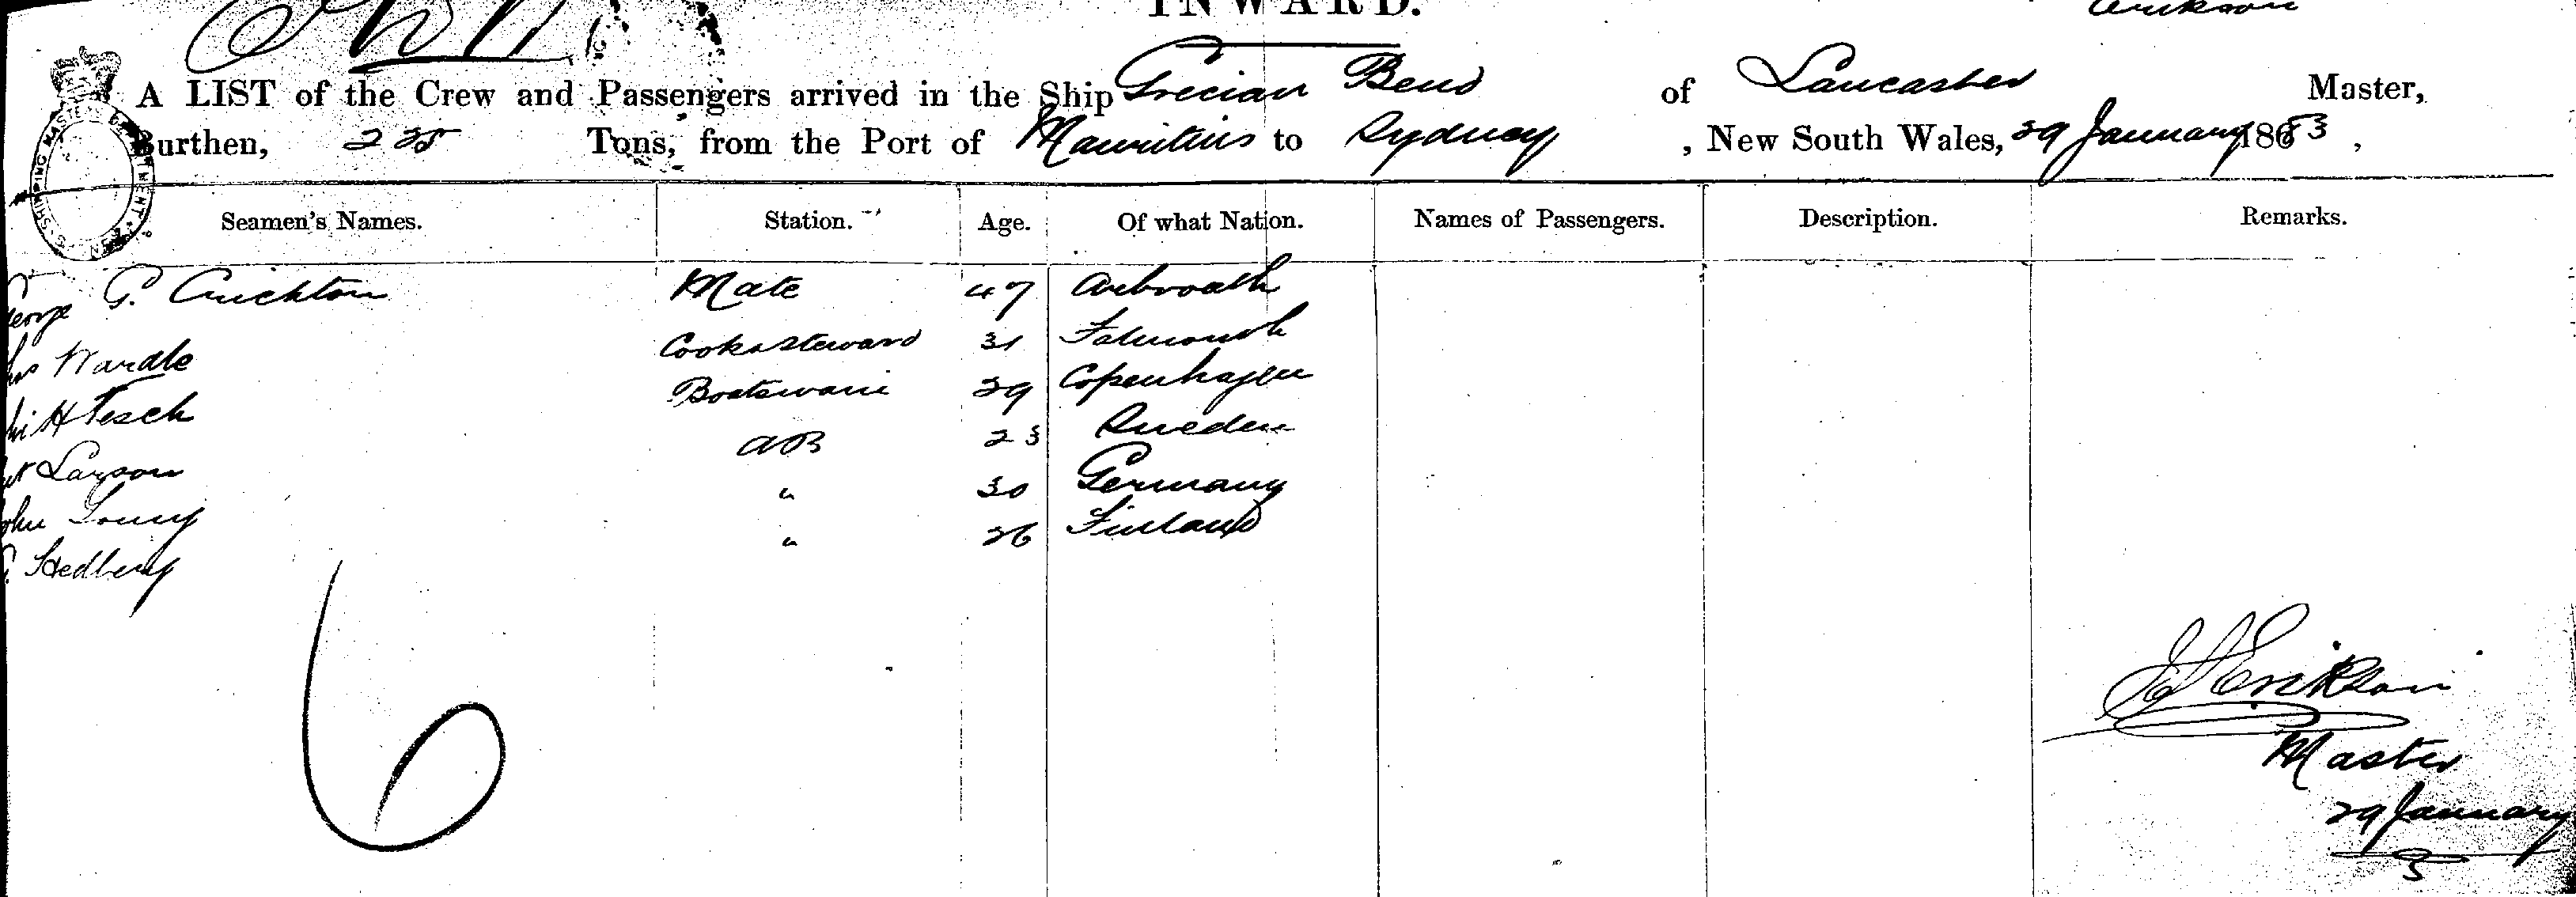 INWARD.
Erikson
A LIST of the Crew and Passengers arrived in the Ship Grecian Bend of Lancaster Master,
Burthen, 225 Tons, from the Port of Mauritius to Sydney, New South Wales, 29 January 1883,
Seamen's Names. Station. Age. Of what Nation. Names of Passengers. Description. Remarks.
George G. Crichton Mate 47 Arbroath
Wardle Cook & Steward 31 Falmouth
H Tesch Boatswain 29 Copenhagen
Larson AB 23 Sweden
John Young " 30 Germany
Hedberg " 26 Finland
6
Erikson
Master
29 January
3